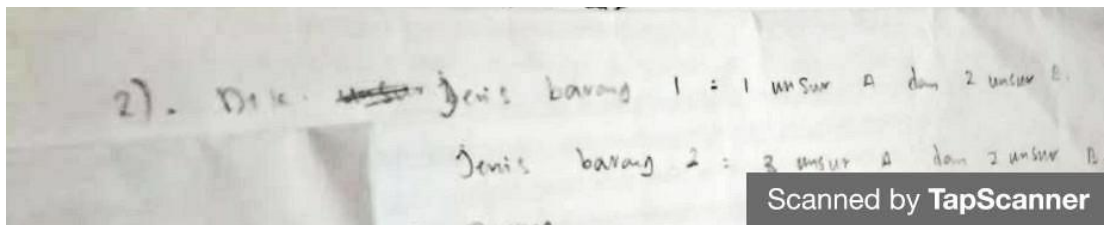 2). Dik. Jenis barang 1 = 1 unsur A dan 2 unsur B.
Jenis barang 2 : 3 unsur A dan 2 unsur B
Scanned by TapScanner